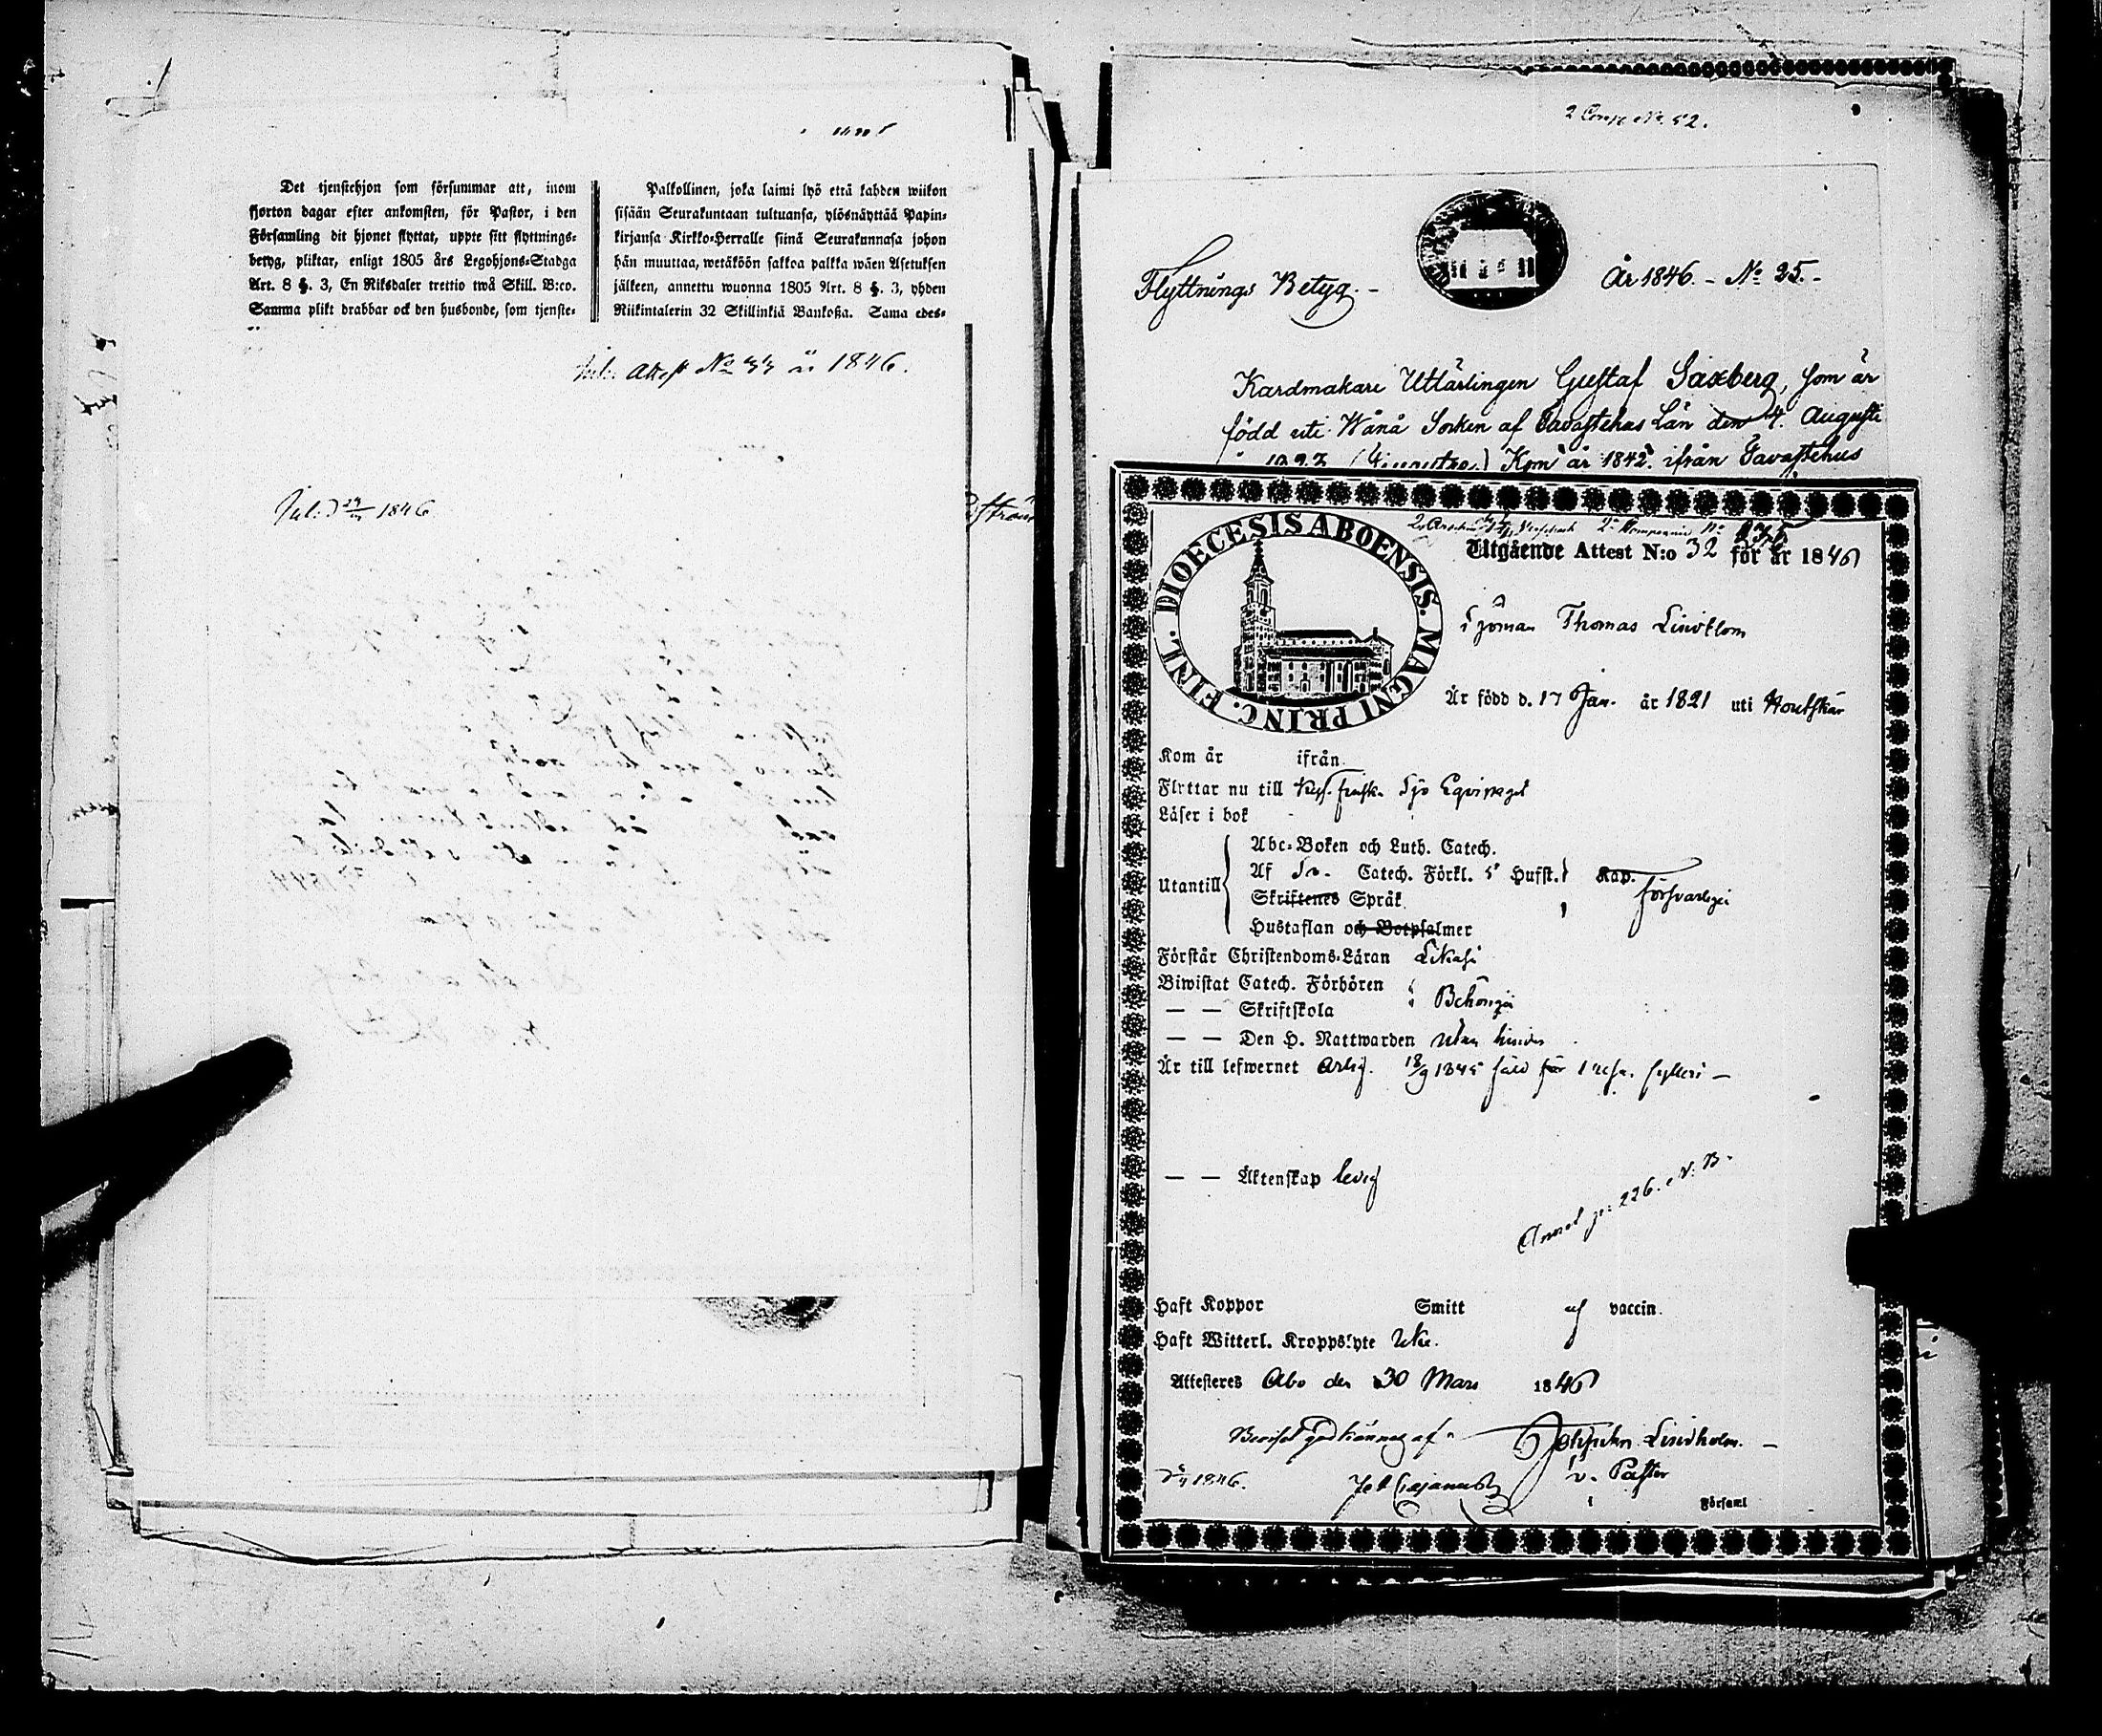 Det tjenstehjon som försummar att, inom
fjorton dagar efter ankomsten, för Pastor, i den
Församling dit hjonet flyttat, uppte sitt flyttnings-
betyg, pliktar, enligt 1805 års Legohjons-Stadga
Art. 8 §. 3, En Riksdaler trettio twå Skill. B:co.
Samma plikt drabbar ock den husbonde, som tjenste-
Palkollinen, joka laimi lyö että kahden wiikon
sisään Seurakuntaan tultuansa, ylösnäyttää Papin-
kirjansa Kirkko-Herralle siinä Seurakunnasa johon
hän muuttaa, wetäköön sakkoa palkka wäen Asetuksen
jälkeen, annettu wuonna 1805 Art. 8 §. 3, yhden
Riikintalerin 32 Skillinkiä Bankoßa. Sama edes-
Attest No 33 år 1846.
1846
2 Comp No. 52.
Flyttnings Betyg. -
År 1846. - No 25. -
Kardmakare Utlärlingen Gustaf Saxberg, som är
född uti Wånå Socken af Tavastehus Län den 4. Augusti
Kom år 1842. ifrån Tavastehus
DIOECESIS ABOENSIS. MAGNI PRINC. FINL.
Utgående Attest N:o 32 för år 1846
Sjöman Thomas Lindblom
Är född d. 17 Jan. år 1821 uti Houtskär
Kom år ifrån
Flyttar nu till Finska Sjö Equipaget
Läser i bok
Abc-Boken och Luth. Catech.
Utantill Af Sv. Catech. Förkl. 5 Hufst. Kap. försvarligen
Skriftenes Språk
Hustaflan och Botpsalmer
Förstår Christendoms-Läran Likaså
Biwistat Catech. Förhören
— — Skriftskola Behörigen
— — Den H. Nattwarden utan hinder
Är till lefwernet Ärlig. 18/9 1845 fäld för 1 resa fylleri —
— — Äktenskap ledig
Annot p: 226. N. B.
Haft Koppor Smitt af vaccin.
Haft Witterl. Kroppslyte Icke.
Attesteres Åbo den 30 Mars 1846
Josephin Lindholm. —
1846.
v. Pastor
Församl